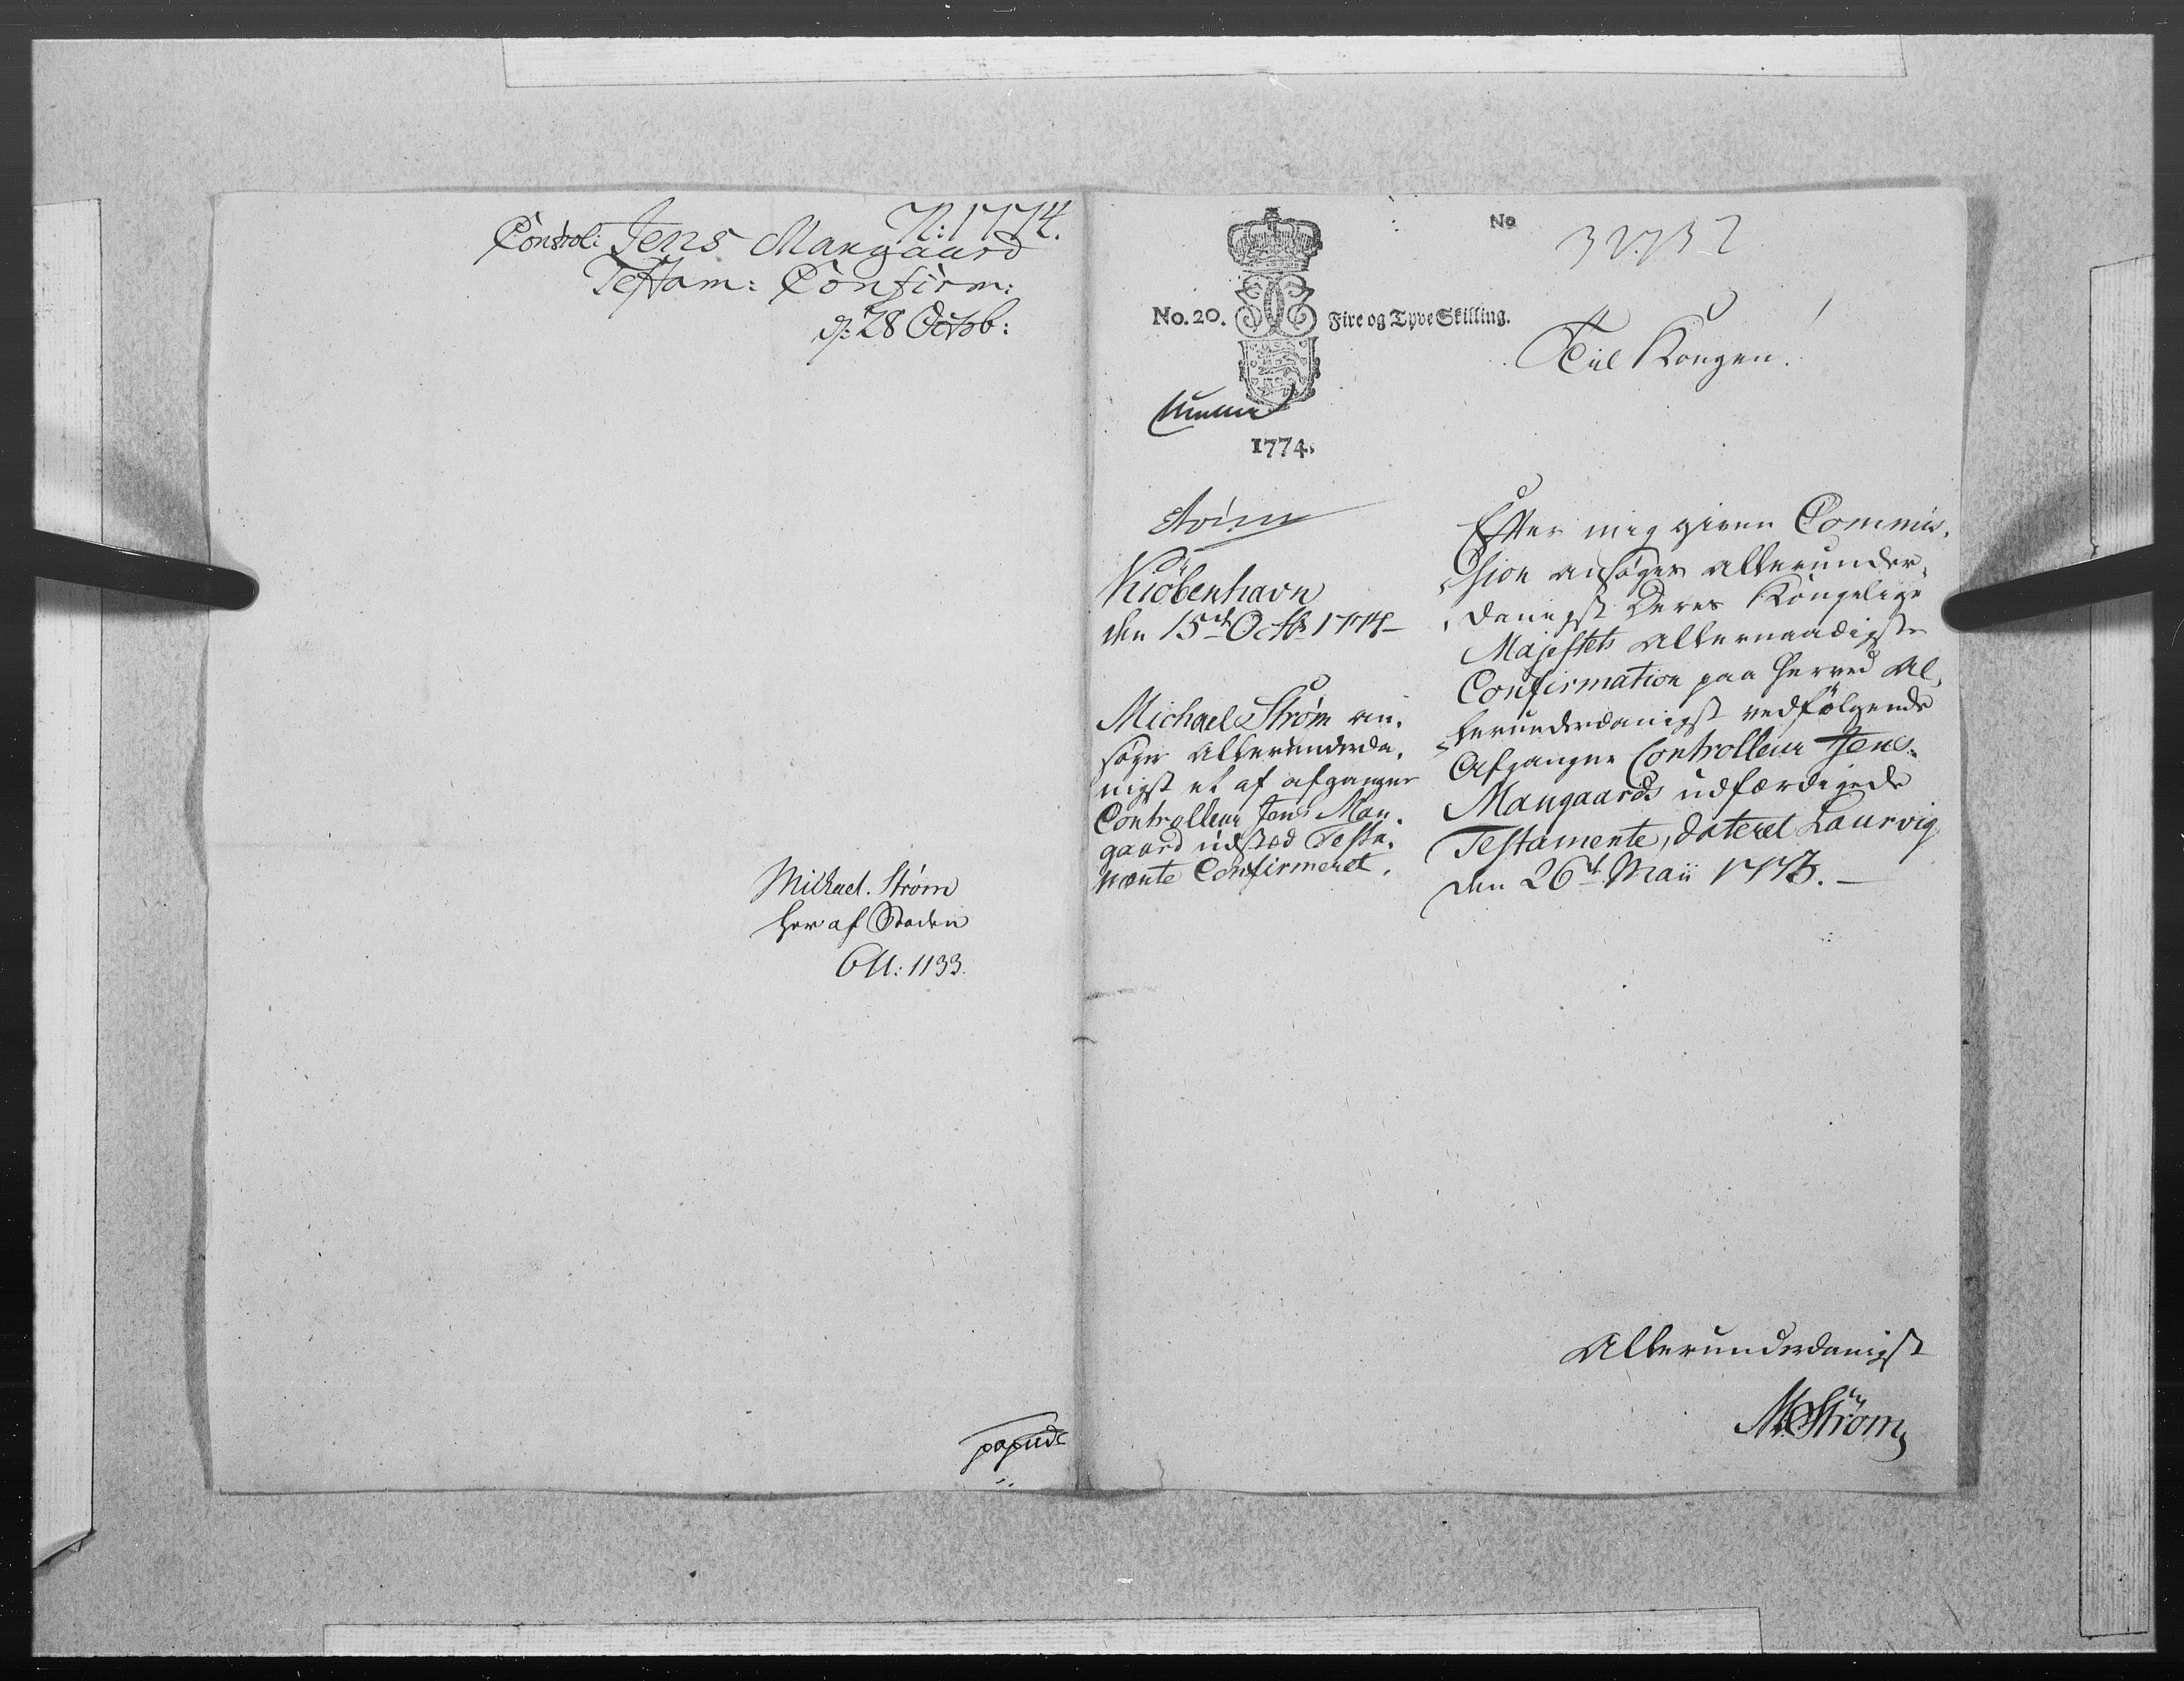 N: 1774.
Control: Jens Mangaard
Testam: Confirm:
d: 28 Octob:
Michael. Strøm
her af Staden
1133.
No
No. 20.
Fire og Tyve Skilling.
Til Kongen.
1774.
Kiøbenhavn
den 15de Octbr 1774
Michael Strøm an-
søger allerunderda-
nigst et af afgangne
Controlleur Jens Man-
gaard udstæd Testa-
mente Confirmeret.
Efter mig given Commis-
sion ansøges allerunder-
danigst Deres Kongelige
Majestets allernaadigste
Confirmation paa herved al-
lerunderdanigst vedfølgende
Afgangne Controlleur Jens
Mangaards udfærdigede
Testamente, dateret Laurvig
den 26de Maii 1773.
Allerunderdanigst
M. Strøm